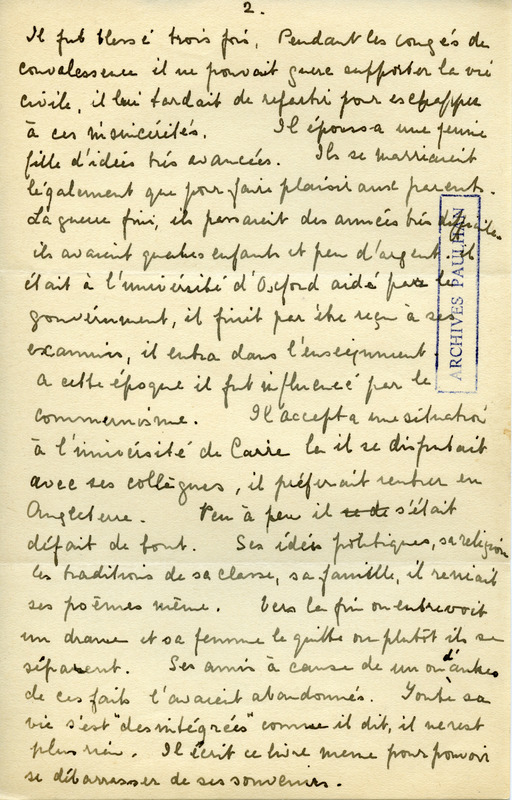 2.
Il fut blessé trois fois. Pendant les congés de
convalessence il ne pouvait guere supporter la vie
civile, il lui tardait de repartir pour eschapper
à ces insincérités. Il épousa une jeune
fille d'idées très avancées. Ils se marriaient
légalement que pour faire plaisir aux parents.
La guerre fini, ils passaient des années très difficiles
ils avaient quatres enfants et peu d'argent. Il
était à l'université d'Oxford aidé par le
gouvernment, il finit par être reçu à ses
examins, il entra dans l'enseignment
a cette époque il fut influencé par le
communisme. Il accepta une situation
à l'université de Caire la il se disputait
avec ses collègues, il préferait rentrer en
Angleterre. Peu à peu il s'était
défait de tout. Ses idées politiques, sa religion
les traditions de sa classe, sa famille, il reniait
ses poèmes même. Vers la fin on entrevoit
un drame et sa femme le quitte ou plutôt ils se
séparent. Ses amis à cause de un ou d'autres
de ces faits l'avaient abandonnés. Toute sa
vie s'est "desintégrées" comme il dit, il ne rest
plus rien. Il écrit ce livre meme pour pouvoir
se débarrasser de ses souvenirs.
ARCHIVES PAULHAN